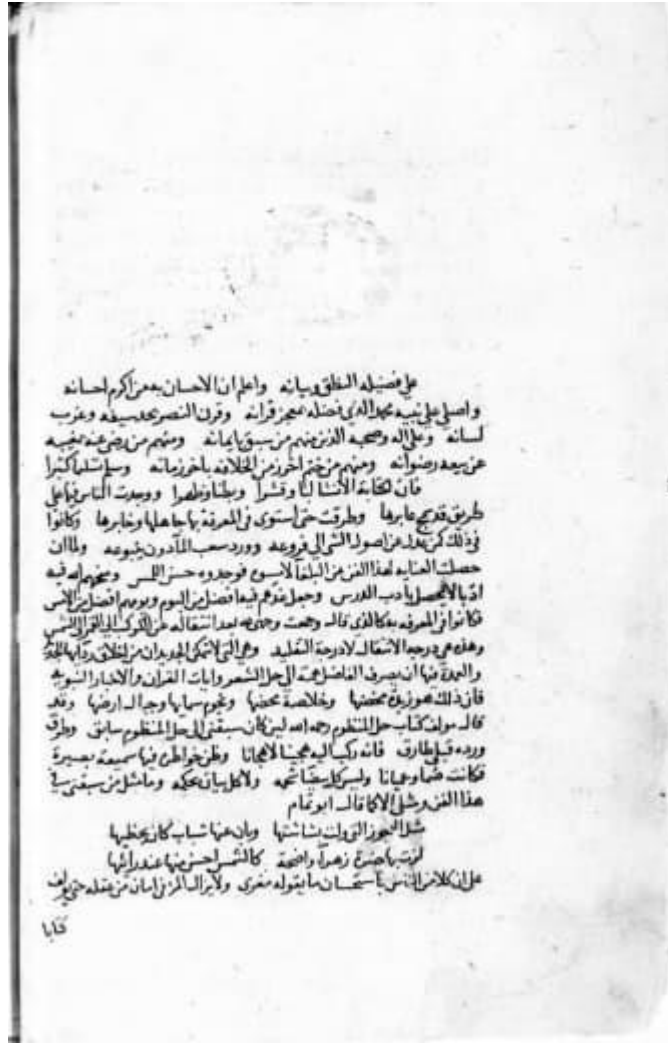 على فضيله المنطق وبيانه واعلم ان الاحسان به من اكرم احسانه
واصلي على نبيه محمد الذي فضله بمعجز قرانه وقرن النصر بحد سيفه وغرب
لسانه وعلى اله وصحبه الذين منهم من سبق بايمانه ومنهم من رضي عنه بمغيبه
عن بيعه رضوانه ومنهم من ختم اخر زمن الخلافه باخر زمانه وسلم تسليما كثيرا
فان لكتابة الانشا لبا وقشورا وبطنا وظهرا ووجدت الناس فيها على
طريق عابرها وطرقت حتى استوى في المعرفة بها جاهلها وخابرها وكانوا
في ذلك كمن عدل عن اصول الشي الى فروعه وورد سعب الماء دون ينبوعه ولما ان
حصلت العنايه لهذا الفن من البلغا لابسوه فوجدوه حسن اللمس ومنحهم الله فيه
ادبا لا يحصل بادب الدرس وجعل غدهم فيه افضل من اليوم ويومهم افضل من الامس
فكانوا في المعرفه به كالذي قال وجهت وجهي بعد انتقاله عن الكوكب الى القمر الى الشمس
وهذه هي درجه الانتقال لا درجة التقليد وهي التي لا يمكن الجديدان من اخلاق
والعمدة فيها ان يصرف الفاضل همه الى حل الشعر وايات القران والاخبار النبويه
فان ذلك هو زبدة مخضها وخلاصة محضها ونجوم سمايها وجبال ارضها وقد
قال مولف كتاب حل المنظوم رحمه الله لين كان سبقني الى حل المنظوم سابق وطرق
ورده قبلي طارق فانه ركب اليه هجينا لا هجانا وظن خواطره فيها سميعة بصيرة
فكانت صما وعميانا وليس كل بيضا شحمه ولا كل بيان بحكمه وما مثل من سبقني في
هذا الفن ومثلي الا كما قال ابو تمام
مثل العجوز التي ولت بشاشتها وبان عنها شباب كان يحظيها
لزت بها ضرة زهرا واضحة كالشمس احسن منها عند رائيها
على ان كلا من الناس باستحسان ما يقوله مغرى ولا يزال المرء في امان من عقله حتى يولف